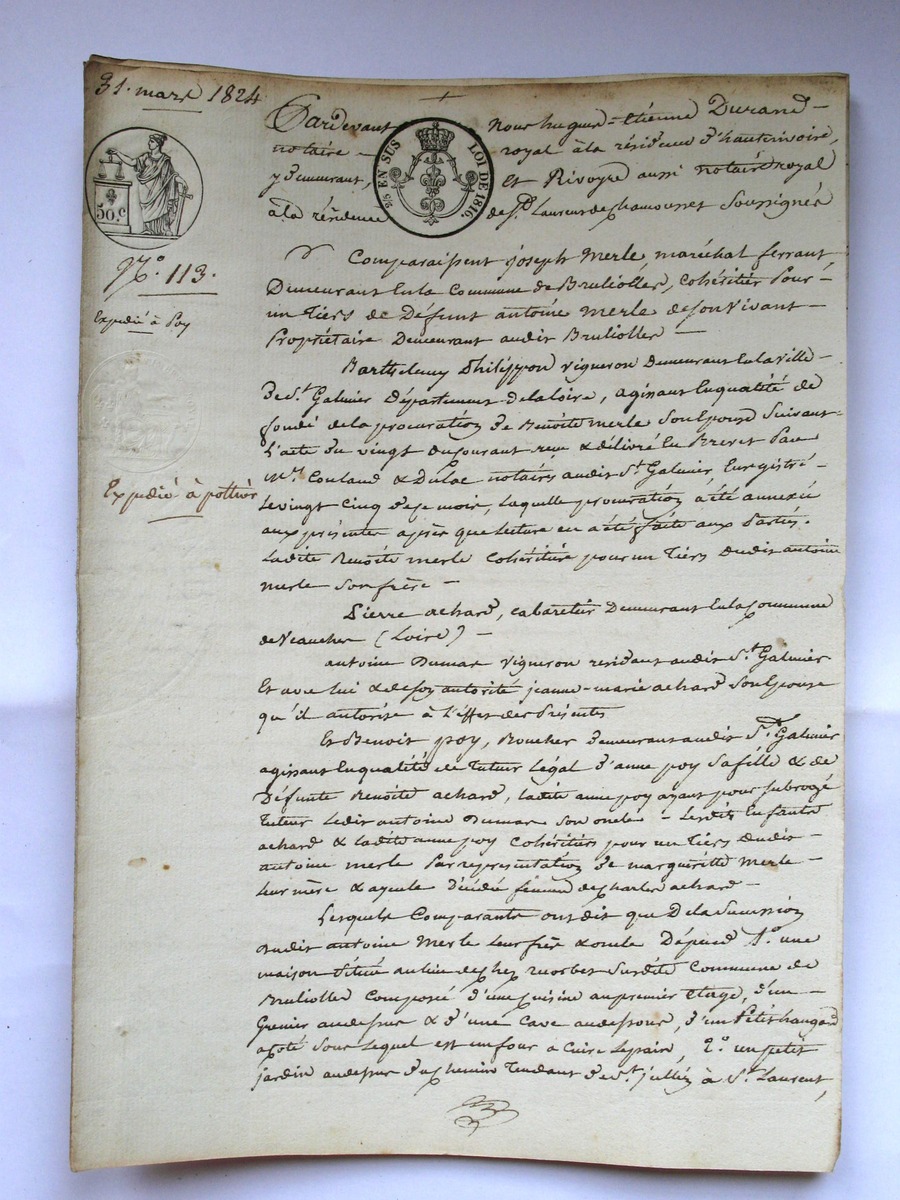 31. mars 1824
50.c
N.° 113.
Expedié à Poy
Expedié à pothier
EN SUS LOI DE 1816
Pardevant Nous hugues-Etienne Durand-
notaire - royal à la résidence d'hauterivoire,
y demeurant, Et Rivoyre aussi notaire royal
à la résidence de St. Laurent de chamousset Soussignés
Comparaissent joseph Merle, maréchal ferrant,
Demeurant En la Commune de Brulioller, Cohéritier Pour-
un Tiers de Défunt antoine Merle de Son Vivant-
Propriétaire Demeurant audit Brulioller -
Barthelemy Philippon vigneron Demeurant En la ville-
de St. Galmier Département de la Loire, agissant En qualité de
fondé de la procuration de Benoite Merle Son Epouse Suivant-
L'acte du vingt du Courant reçu & délivré En Brevet Par
Mes Couland & Dulac notaires audit St. Galmier Enregistré-
le vingt cinq de ce mois, Laquelle procuration à été annexée
aux présentes après que Lecture en a été faite aux Parties.
Ladite Benoite merle Cohéritière pour un Tiers dudit antoine
merle Son frère -
Pierre achard, cabaretier Demeurant En la Commune
de Veauche (Loire) -
antoine Dumas vigneron résidant audit St. Galmier
Et avec lui & de Son autorité jeanne-marie achard Son Epouse
qu'il autorise à L'effet des Présentes
Et Benoit poy, Boucher Demeurant audit St. Galmier
agissant En qualité de Tuteur Légal d'anne poy Sa fille & de
Défunte Benoite achard, Ladite anne poy ayant pour Subrogé
Tuteur Ledit antoine Dumas Son oncle - Lesdits Enfants
achard & Ladite anne poy Cohéritiers pour un Tiers dudit-
antoine merle Par représentation de marguerite Merle-
leur mère & ayeule Décédée femme de Charles achard -
Lesquels Comparants ont dit que De la Succession
dudit antoine Merle leur frère & oncle Dépend 1.° une
maison Située au lieu de chez Susdite Commune de
Brulioller Composée d'une Cuisine au premier Etage, d'un-
Grenier au dessus & d'une Cave au dessous, d'un Petit hangard
a coté Sous Lequel est un four a Cuire Le pain, 2.° un petit
jardin au dessus du Chemin Tendant de St. jullien à St. Laurent,